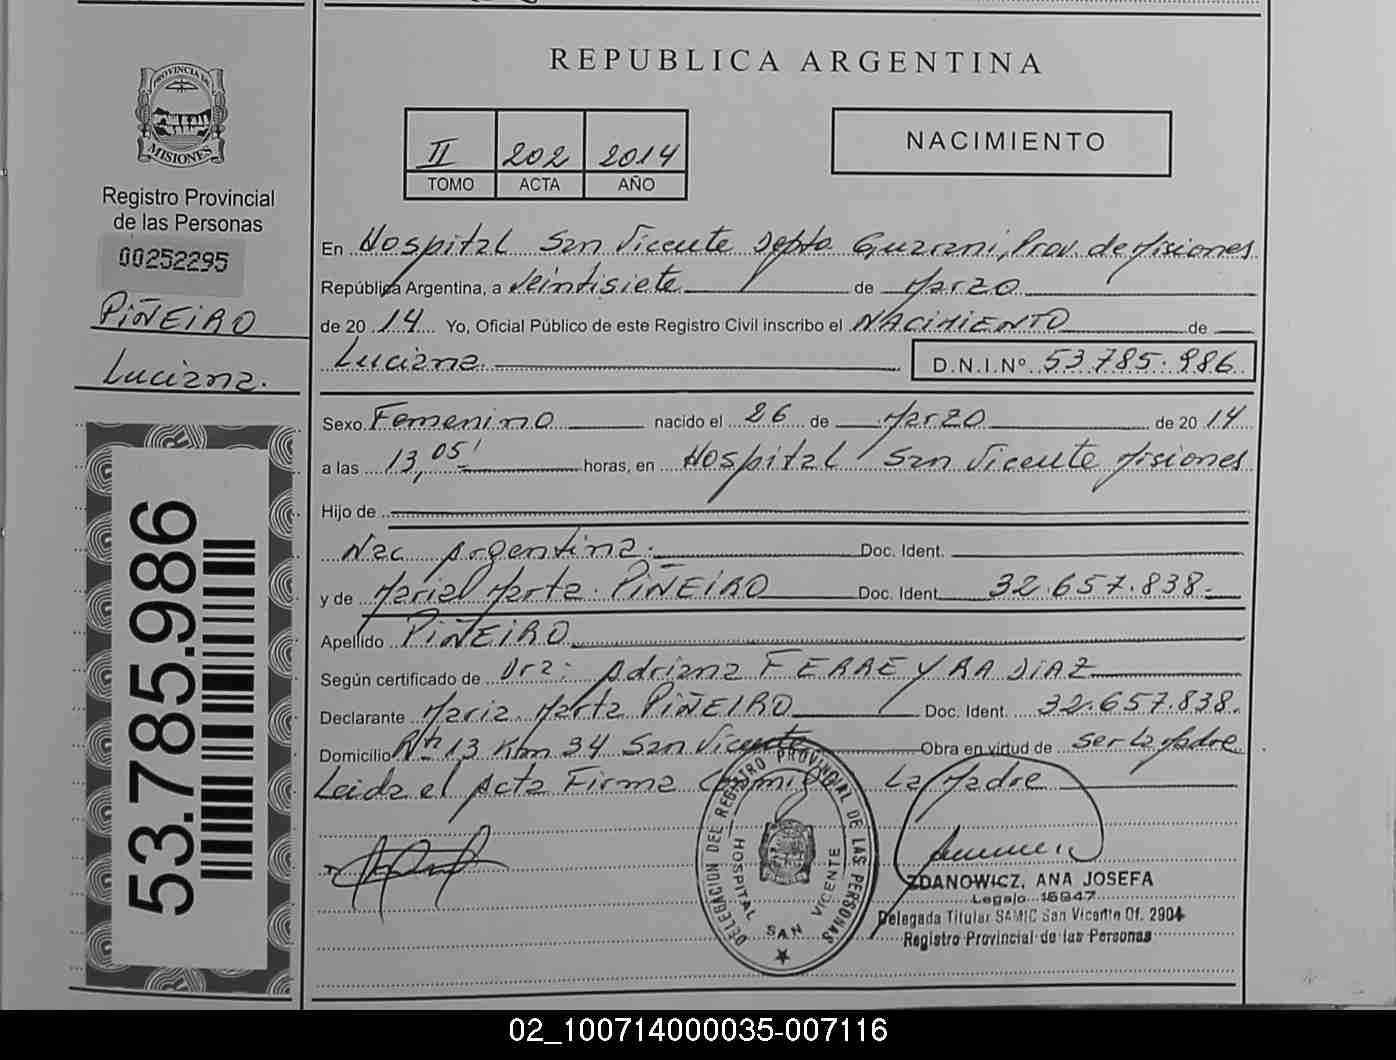 PROVINCIA DE
MISIONES
Registro Provincial
de las Personas
00252295
PIÑEIRO
Luciana.
53.785.986
REPUBLICA ARGENTINA
II 202 2014
TOMO ACTA AÑO
NACIMIENTO
En Hospital San Vicente Depto Guarani, Prov. de Misiones
República Argentina, a Veintisiete de Marzo
de 20 14 Yo, Oficial Público de este Registro Civil inscribo el NACIMIENTO de
Luciana. D.N.I.Nº 53.785.986
Sexo Femenino nacido el 26 de Marzo de 20 14
a las 13,05' horas, en Hospital San Vicente Misiones
Hijo de
Nac Argentina. Doc. Ident.
y de Mariel Marta PIÑEIRO Doc. Ident. 32.657.838.-
Apellido PIÑEIRO
Según certificado de Dra: Adriana FERREYRA DIAZ
Declarante Maria Marta PIÑEIRO Doc. Ident. 32.657.838.
Domicilio Rn 13 Km 34 San Vicente Obra en virtud de ser la Madre
Leida el Acta Firma La Madre
DELEGACION DEL REGISTRO PROVINCIAL DE LAS PERSONAS
HOSPITAL SAN VICENTE
ZDANOWICZ, ANA JOSEFA
Legajo 16947
Delegada Titular SAMIC San Vicente Of. 2904
Registro Provincial de las Personas
02_100714000035-007116